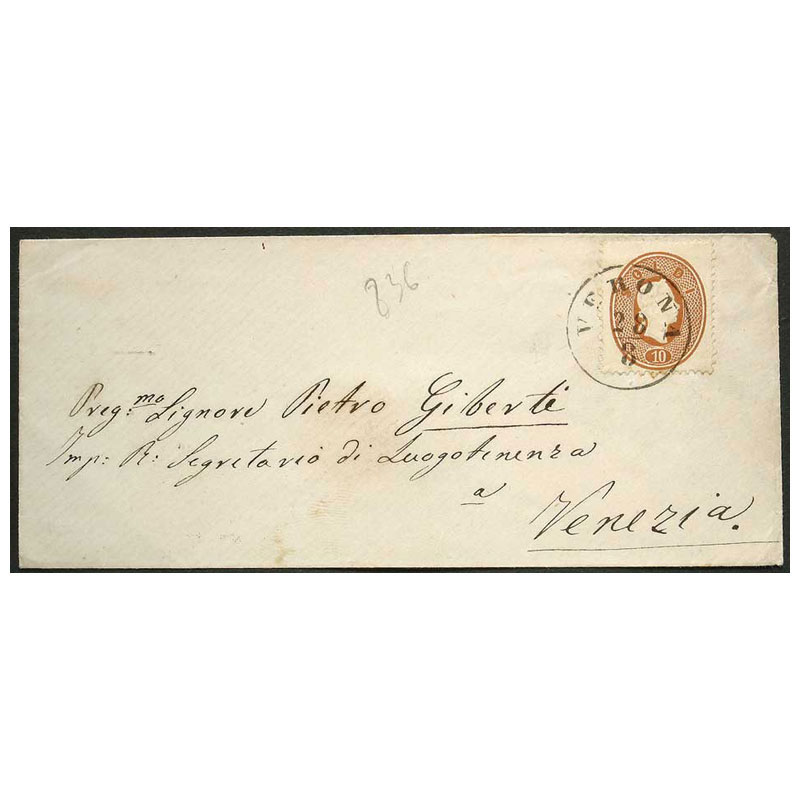 836
SOLDI
10
VERONA
28
8
Preg:mo Signore Pietro Giberti
Imp: R: Segretario di Luogotenenza
a
Venezia.